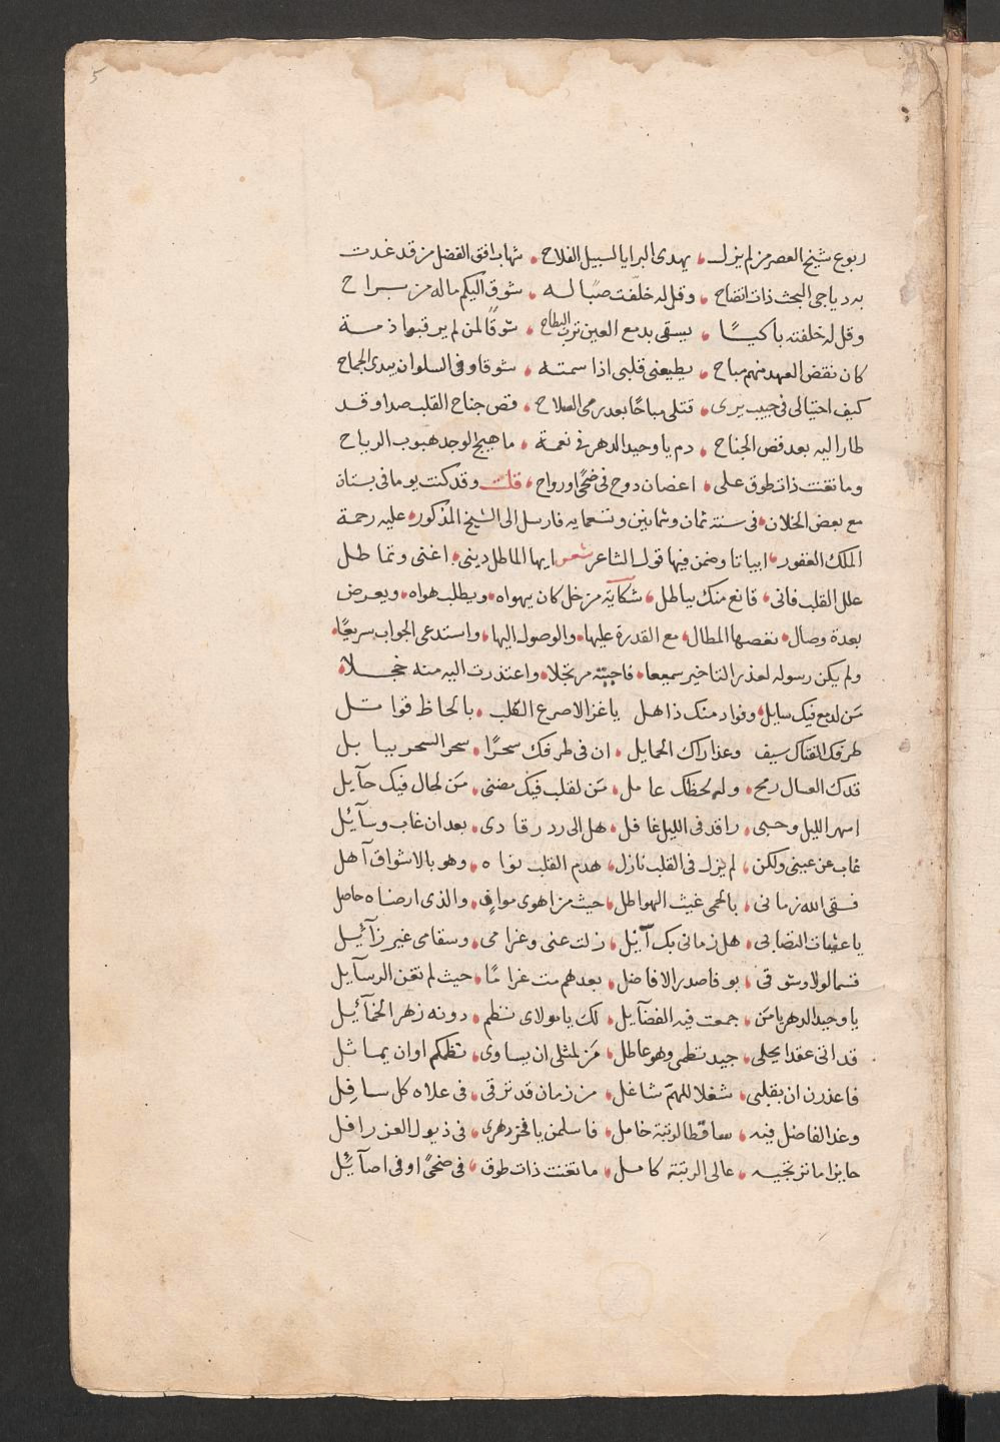 5
ربوع شيخ العصر من لم يزل، يهدى البرايا لسبيل الفلاح، شهاب افق الفضل من قد غدت
به دياجى البحث ذات اتضاح، وقل له خلفت صبا له، شوق اليكم ماله من براح
وقل له خلفته باكيًا، يسقى بدمع العين ترب البطاح، شوقًا لمن لم يرقبوا ذمة
كان نقض العهد منهم مباح، يطيعنى قلبى اذا سمته، شوقا وفى السلوان يبدى الجماح
كيف احتيالى فى حبيب يرى، قتلى مباحًا بعد رمى الصلاح، قص جناح القلب صدا وقد
طار اليه بعد قص الجناح، دم يا وحيد الدهر فى نعمة، ما هيج الوجد هبوب الرياح
وما تغنت ذات طوق على، اغصان دوح فى ضحًى او رواح، قلت وقد كنت يوما فى بستان
مع بعض الخلان، فى سنة ثمان وثمانين وتسعمايه فارسل الى الشيخ المذكور، عليه رحمة
الملك الغفور، ابياتا وضمن فيها قول الشاعر شعر ايها الماطل دينى، اغنى وتماطل
علل القلب فانى، قانع منك بباطل، شكاية من خل كان يهواه، ويطلب هواه، ويعرض
بعدة وصال، نغصها المطال، مع القدرة عليها، والوصول اليها، واستدعى الجواب سريعًا،
ولم يكن رسوله لعذر التاخير سميعا، فاجبته مرتجلا، واعتذرت اليه منه خجلا،
مَن لدمع فيك سايل، وفواد منك ذاهل يا غزالا صرع القلب، بالحاظ قواتل
طرفك الفتاك سيف وعذاراك الحمايل، ان فى طرفك سحرًا، سحر السحر ببابل
قدك العسال رمح، وله لحظك عامل، مَن لقلب فيك مضنى، مَن لحال فيك حآيل
اسهر الليل وحبى، راقد فى الليل غافل، هل الى رد رقادى، بعد ان غاب وسآئل
غاب عن عينى ولكن، لم يزل فى القلب نازل، هدم القلب نواه، وهو بالاشواق آهل
فسقى الله زمانى، بالحمى غيث الهواطل، حيث من اهوى مواف، والذى ارضاه حاصل
يا عشيات التصابى، هل زمانى بك آئل، زلت عنى وغرامى، وسقامى غير زآئل
قسما لولا وشوقى، بوفا صدر الافاضل، بعدهم مت غرامًا، حيث لم تغن الرسآيل
يا وحيد الدهر يا مَن، جمعت فيه الفضآيل، لك يا مولاى نظم، دونه زهر الخمآئل
قد اتى عقدا يحلى، جيد نظمى وهو عاطل، مَن لمثلى ان يساوى، نظمكم او ان يماثل
فاعذرن ان بقلبى، شغلا للهمّ شاغل، من زمان قد ترقى، فى علاه كل سافل
وغدا الفاضل فيه، ساقط الرتبة خامل، فاسلمن يا فخر دهرى، فى ذيول العز رافل
حايزا ما ترتجيه، عالى الرتبة كامل، ما تغنت ذات طوق، فى ضحىً او فى اصآئل